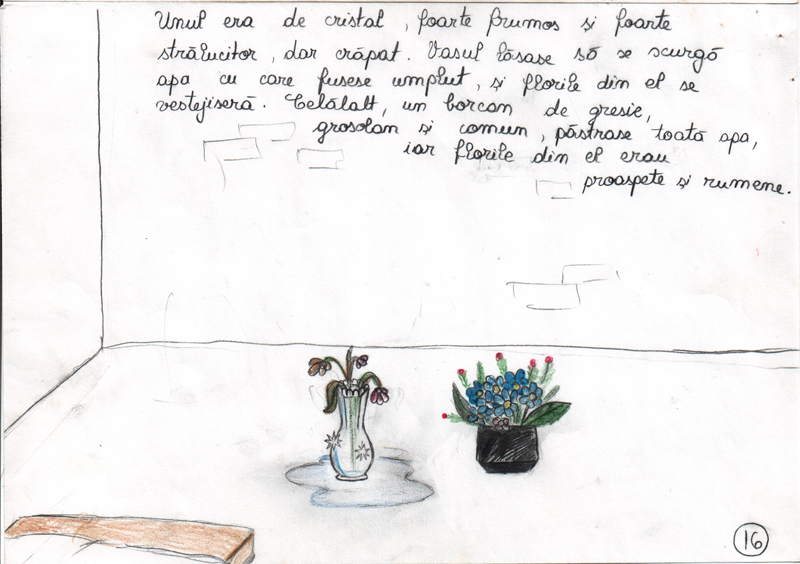 Unul era de cristal, foarte frumos și foarte
strălucitor, dar crăpat. Vasul lăsase să se scurgă
apa cu care fusese umplut, și florile din el se
vestejiseră. Celălalt, un borcan de gresie,
grosolan și comun, păstrase toată apa,
iar florile din el erau
proaspete și rumene.
16